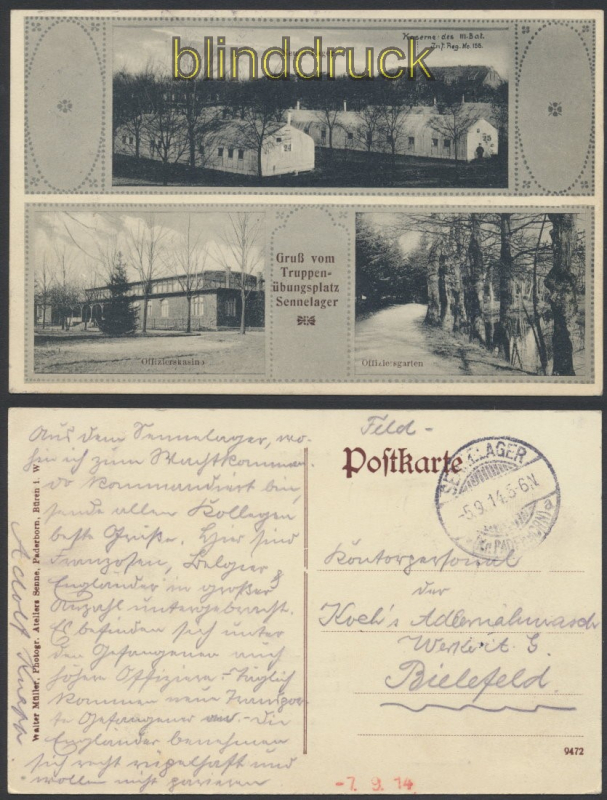 blinddruck
Kaserne des III. Bat.
Inf. Reg. Nr. 158.
Gruß vom
Truppen-
übungsplatz
Sennelager
Offizierskasino
Offiziersgarten
Aus dem Sennelager, wo-
hin ich zum Wachtkomman-
do kommandiert bin,
sende allen Kollegen
beste Grüße. Hier sind
Franzosen, Belgier &
Engländer in großer
Anzahl untergebracht.
Es befinden sich unter
den Gefangenen auch
höhere Offiziere. – Täglich
kommen neue Transpor-
te Gefangener an. – Die
Engländer benehmen
sich recht riegelhaft und
wollen nicht parieren
Adolf
Walter Müller, Photogr. Ateliers Senne, Paderborn, Büren i. W.
Feld-
Postkarte
SENNELAGER
-5.9.14.5-6N.
(Kr. PADERBORN) a
Kontorpersonal
der
Koch's Adlernähmasch
Werke A. G.
Bielefeld.
9472
-7. 9. 14